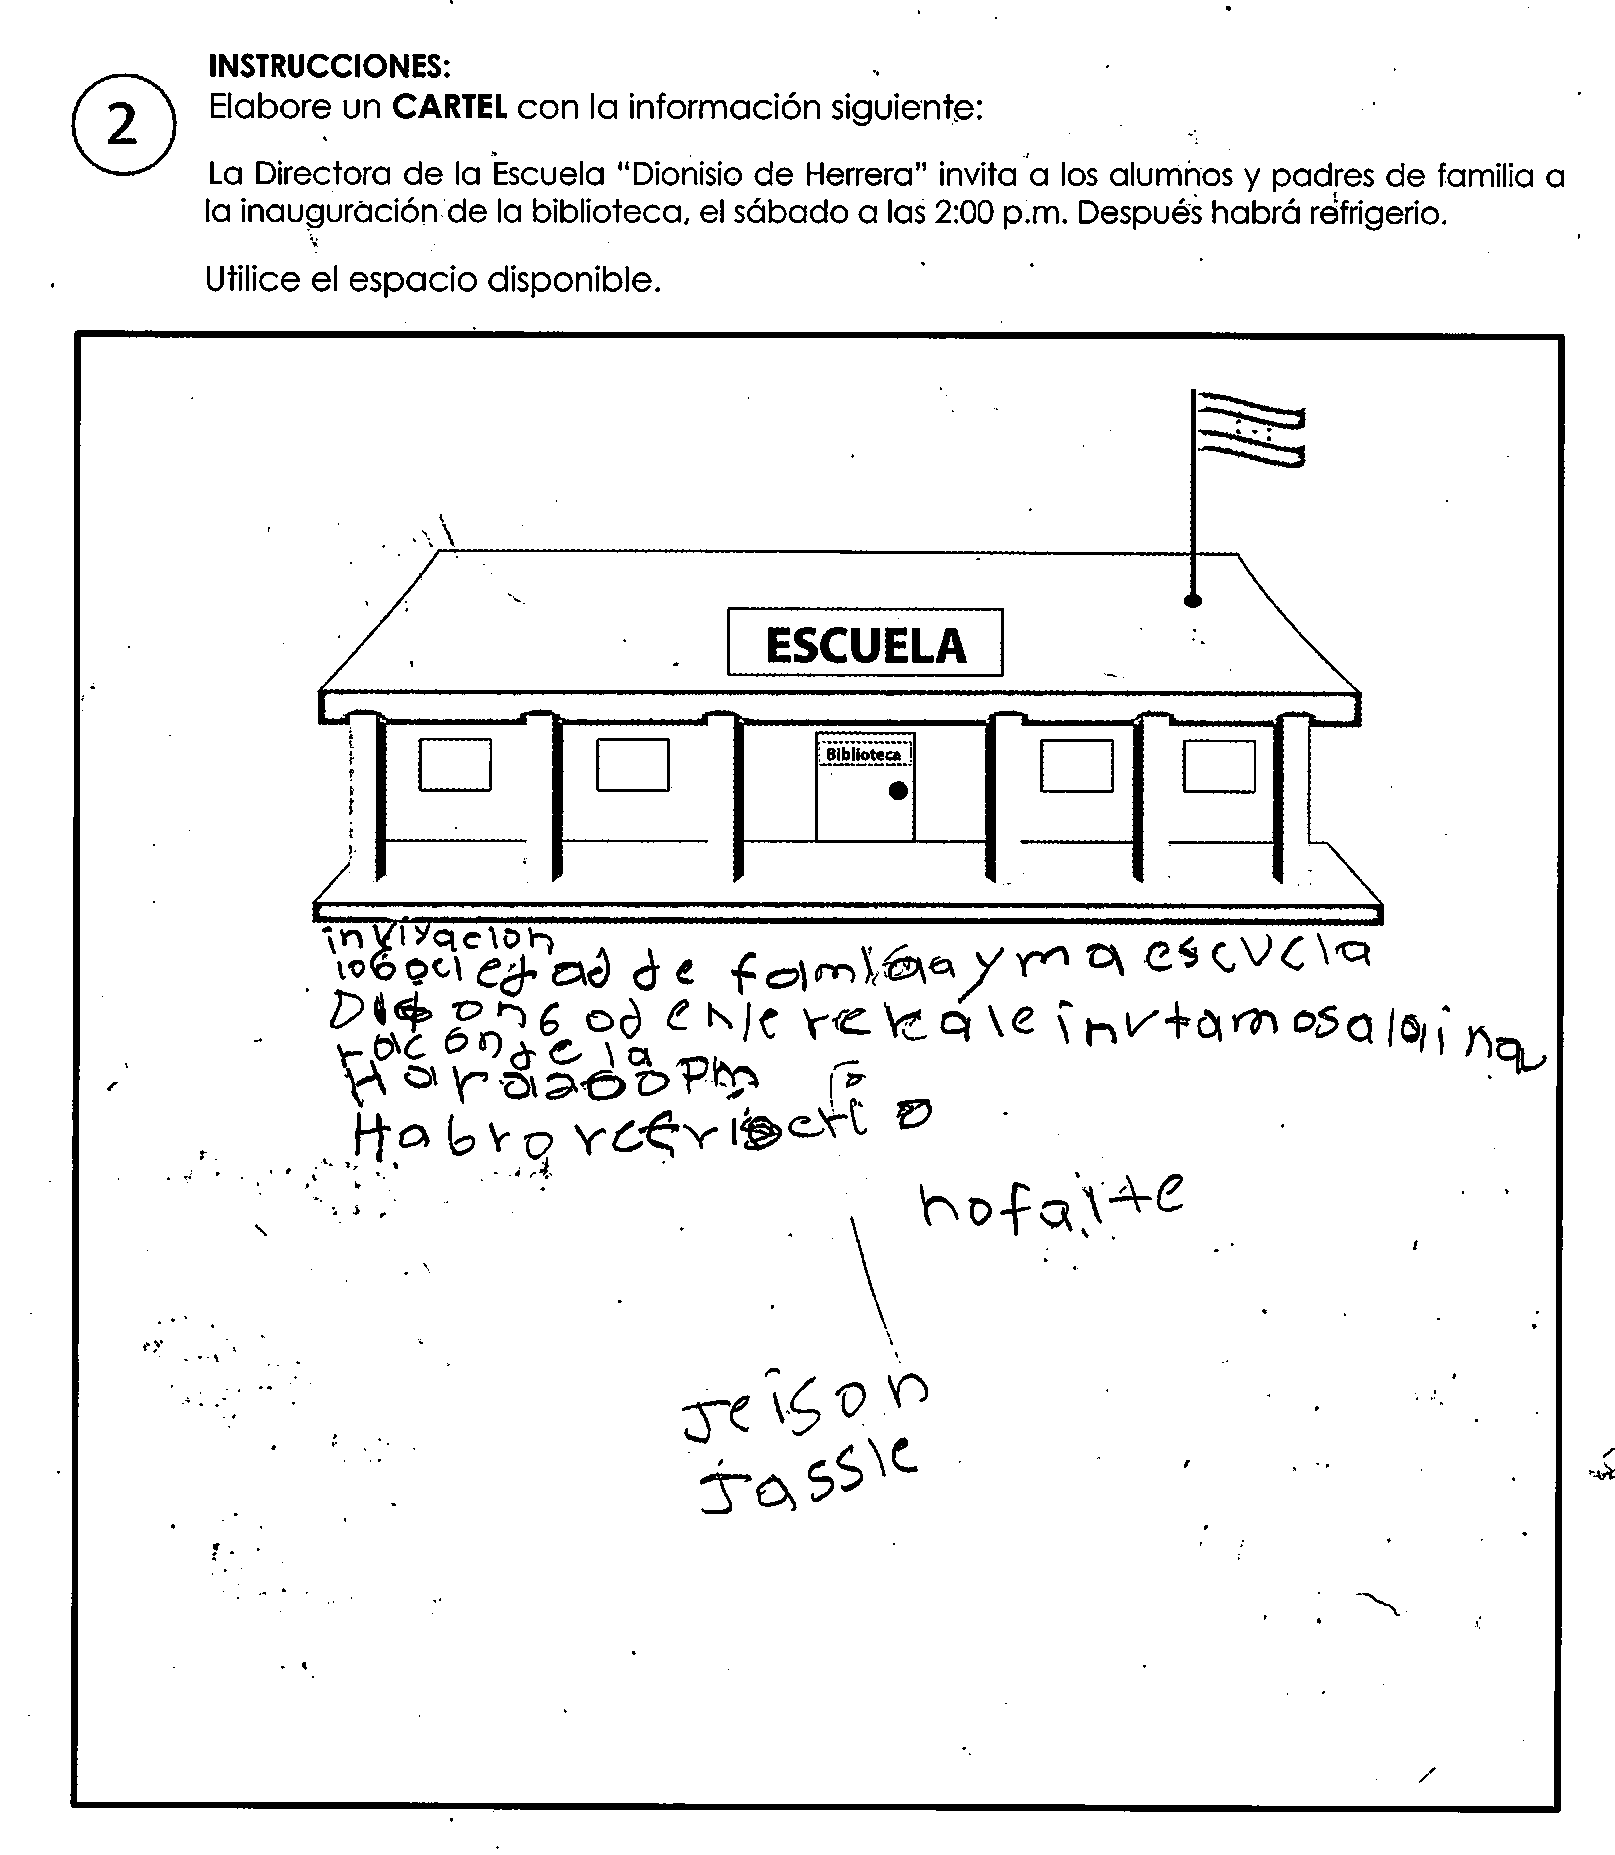 INSTRUCCIONES:
2
Elabore un CARTEL con la información siguiente:
La Directora de la Escuela "Dionisio de Herrera" invita a los alumnos y padres de familia a
la inauguración de la biblioteca, el sábado a las 2:00 p.m. Después habrá refrigerio.
Utilice el espacio disponible.
ESCUELA
Biblioteca
inviyacion
de y ma escuela
invtamos a la ina
racón de la
Hora 200 Pm
Habro
no falte
Jeison
Jassie